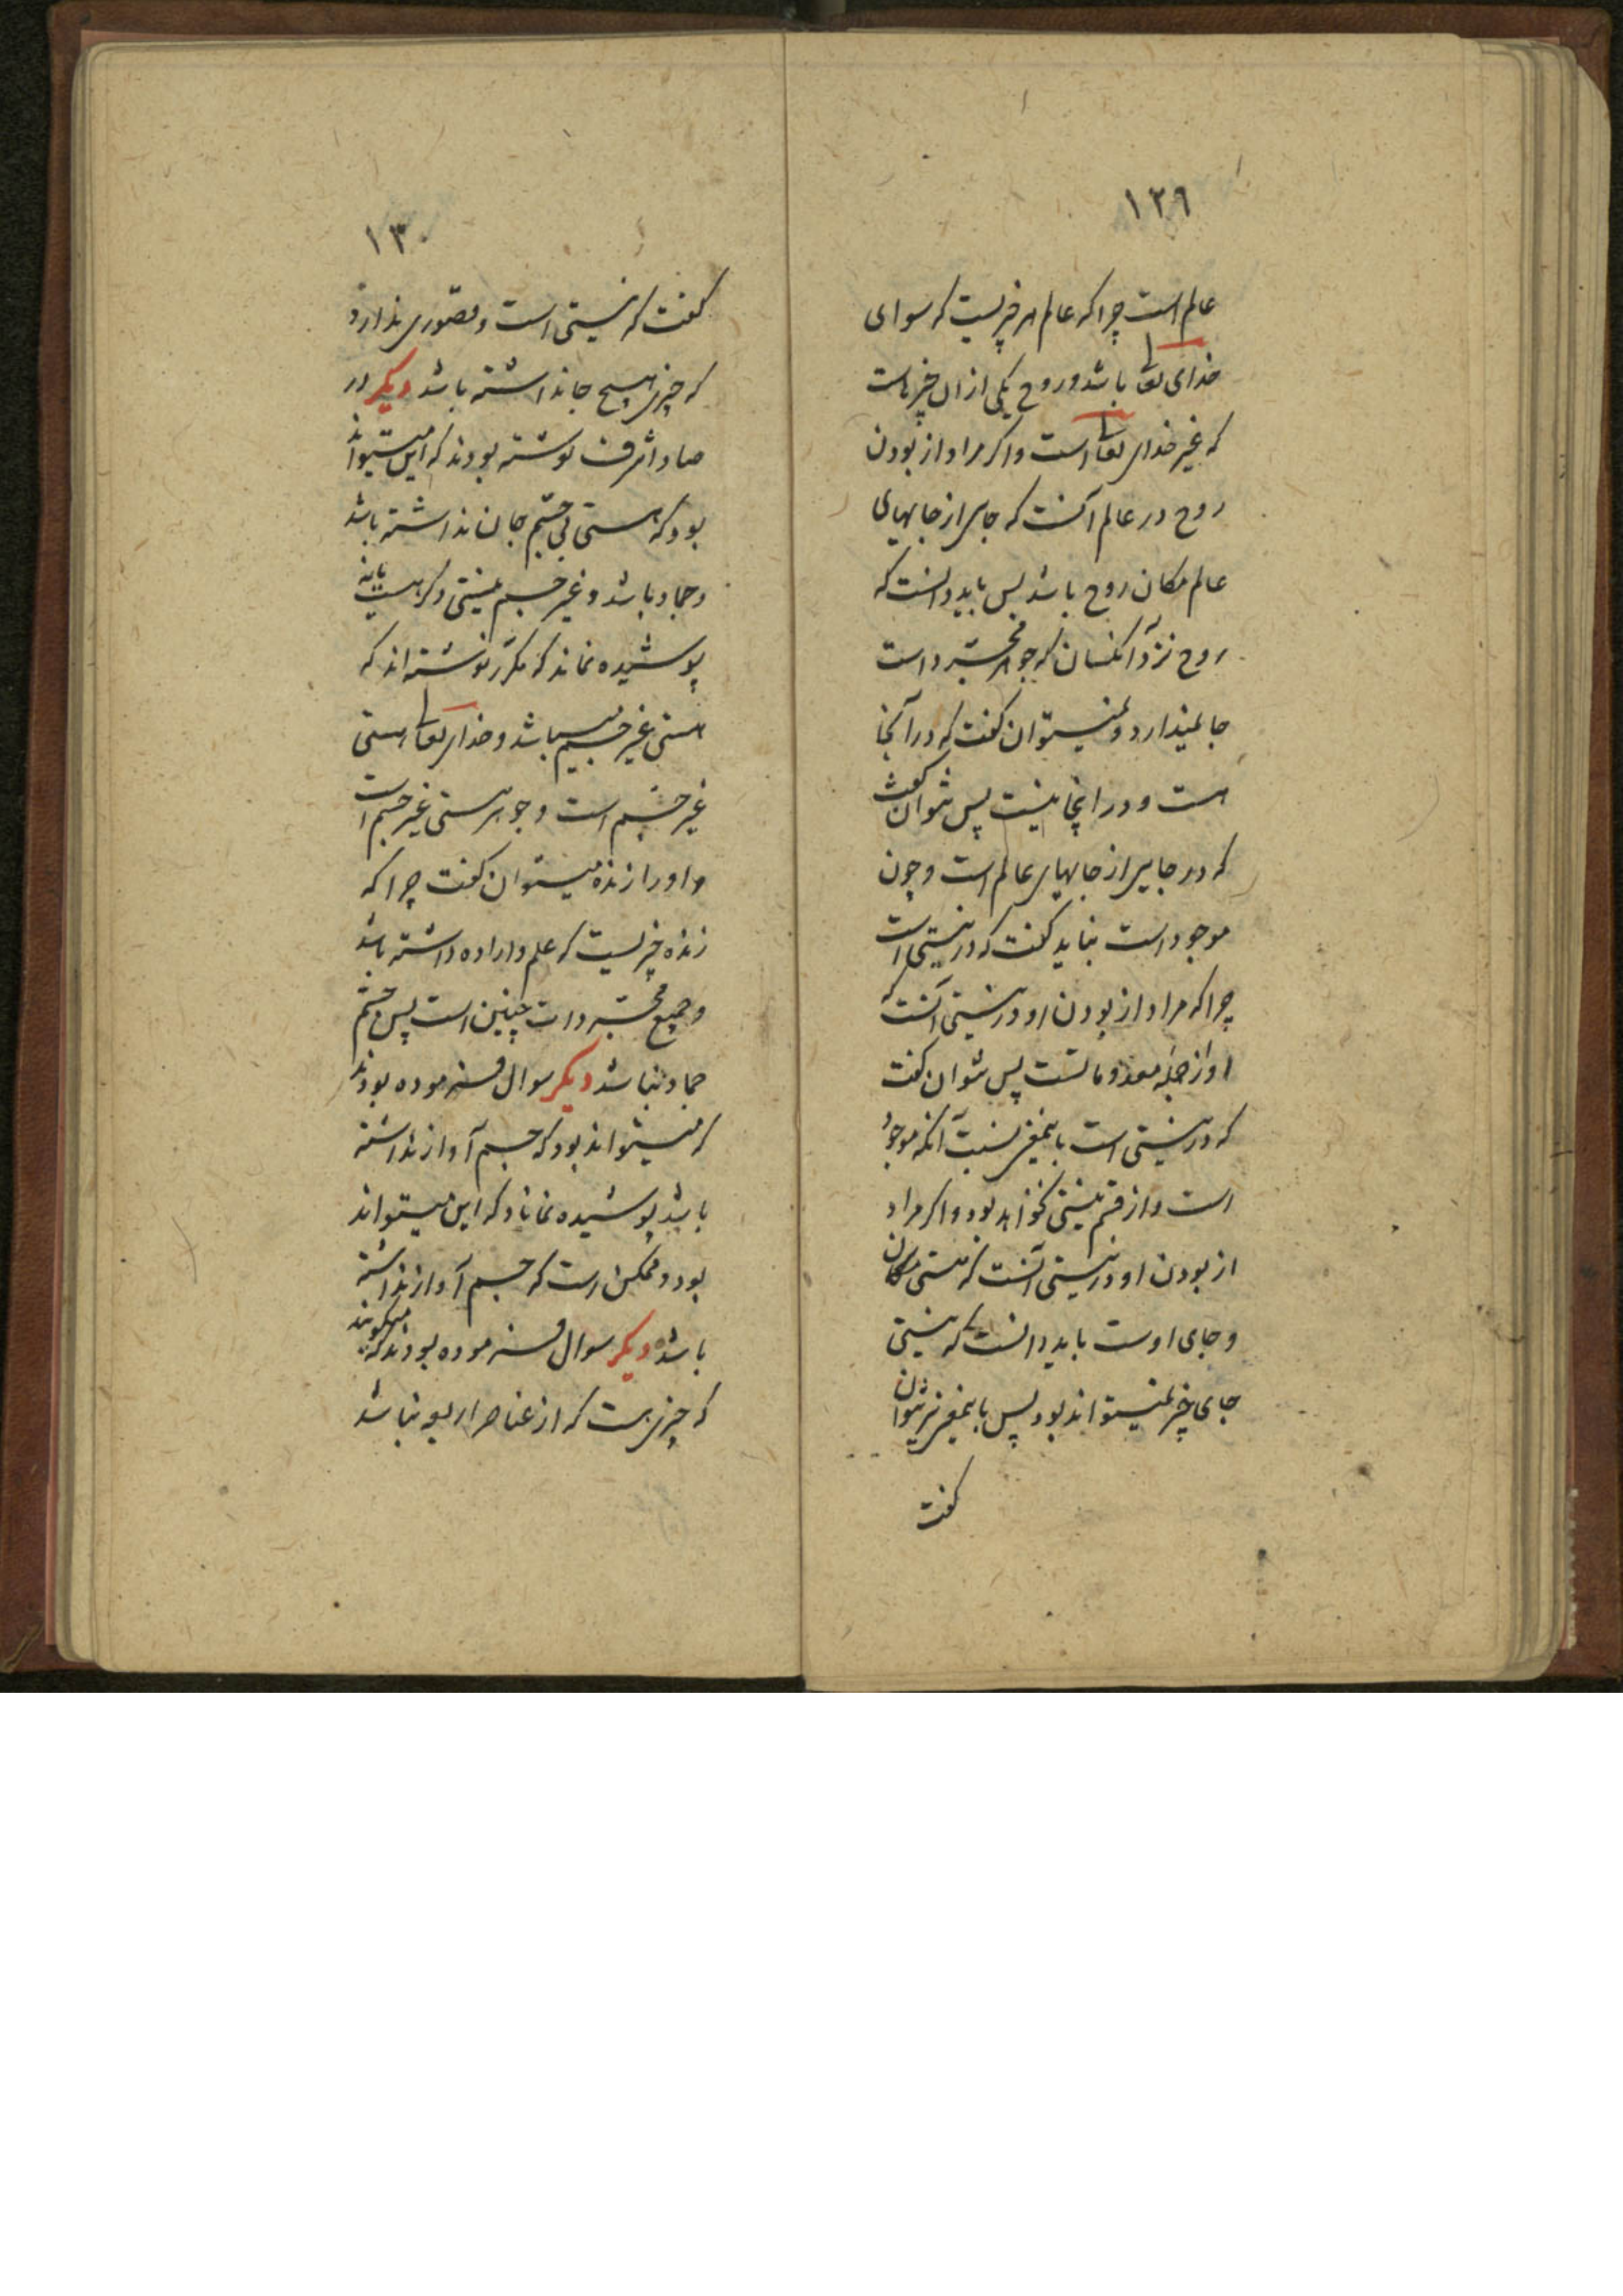 ۱۲۹
عالم است چرا که عالم هر چیزیست که سوای
خدای تعالی باشد و روح یکی از ان چیزهاست
که غیر خدای تعالی است و اکر مراد از بودن
روح در عالم آنست که جایی از جایهای
عالم مکان روح باشد پس باید دانست که
روح نزد آنکسان که جوهر مجرد است
جا نمیدارد و نمیتوان کفت که در آنجا
هست و در اینجا نیست پس نتوان کفت
که در جایی از جایهای عالم است و چون
موجود است نباید کفت که در نیستی است
چرا که مراد از بودن او در نیستی آنست که
او از جمله معدوماتست پس نتوان کفت
که در نیستی است باینمعنی نسبت آنکه موجود
است و از قسم نیستی نخواهد بود و اکر مراد
از بودن او در نیستی آنست که نیستی مکان
و جای اوست باید دانست که نیستی
جای چیز نمیتواند بود پس باینمعنی نیز نتوان
کفت
۱۳۰
کفت که نیستی است و قصوری ندارد
که چیزی هیچ جا نداشته باشد دیکر در
صاد اشرف نوشته بودند که این میتواند
بود که هستی بی جسم جان نداشته باشد
و جماد باشد و غیر جسم نیستی دکر هست یا نه
پوشیده نماند که مکرر نوشته اند که
هستی غیر جسم میباشد و خدای تعالی هستی
غیر جسم است و جوهر هستی غیر جسم است
و او را زنده میتوان کفت چرا که
زنده چیزیست که علم و اراده داشته باشد
و جمیع مجردات چنین است پس قسم
جماد نباشد دیکر سوال فرموده بودند
که میتواند بود که جسم آواز نداشته
باشد پوشیده نماناد که این میتواند
بود و ممکن است که جسم آواز نداشته
باشد دیکر سوال فرموده بودند که میکویند
که چیزی هست که از عناصر اربعه نباشد